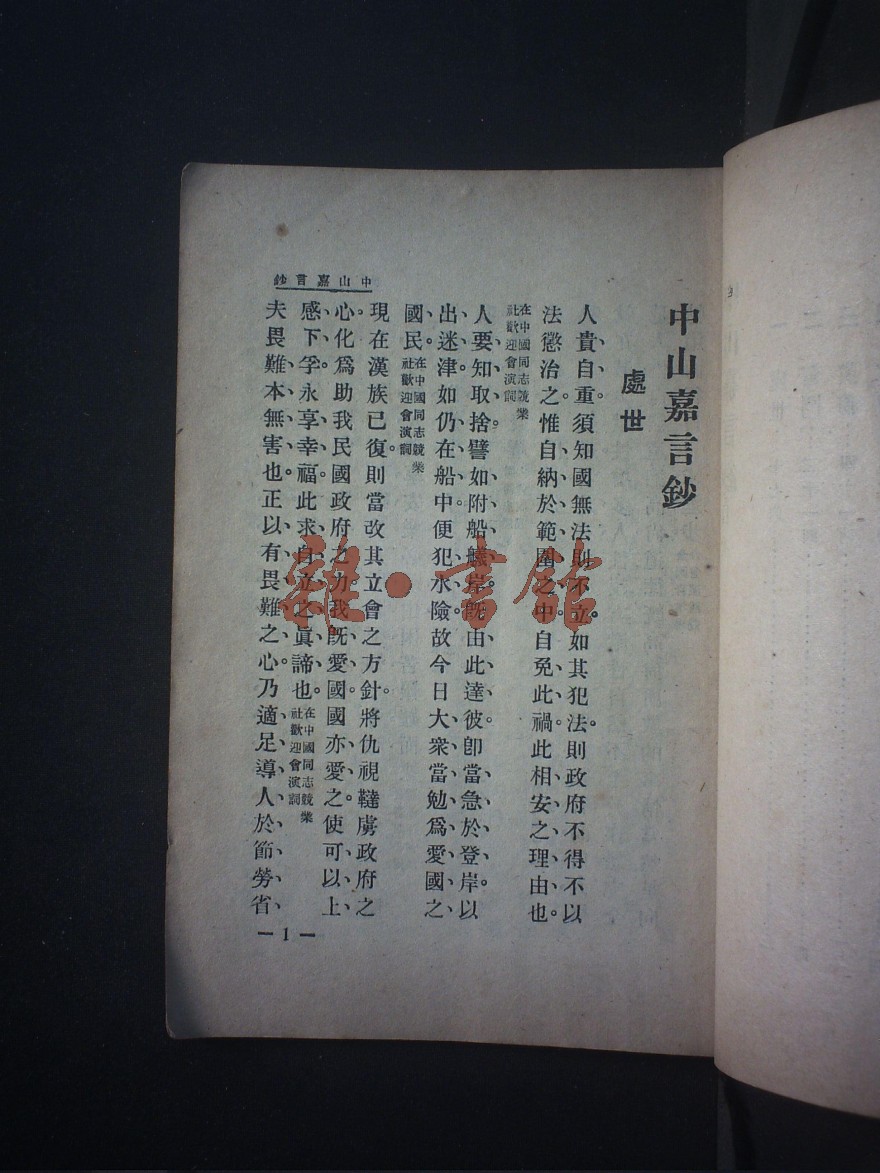 中山嘉言鈔
處世
人貴自重、須知國無法則不立。如其犯法、則政府不得不以
法懲治之、惟自納於範圍之中、自免此禍。此相安之理由也。
在中國同志競業
社歡迎會演詞
人要知取捨、譬如附船艤岸、旣由此達彼、卽當急於登岸。以
出迷津、如仍在船中、便犯水險、故今日大衆當勉爲愛國之
國民。在中國同志競業
社歡迎會演詞
現在漢族已復、則當改其立會之方針。將仇視韃虜政府之
心、化爲助我民國政府之力。我旣愛國、國亦愛之、使可以上
感下孚、永享幸福。此求自立之眞諦也。在中國同志競業
社歡迎會演詞
夫畏難本無害也。正以有畏難之心、乃適足導人於節勞省
中山嘉言鈔
— 1 —
雜·書館